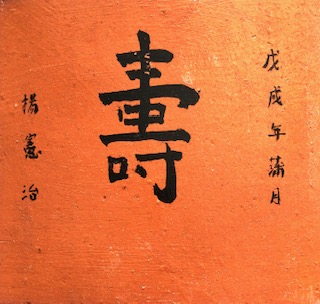 戊戌年蒲月
壽
楊憲治